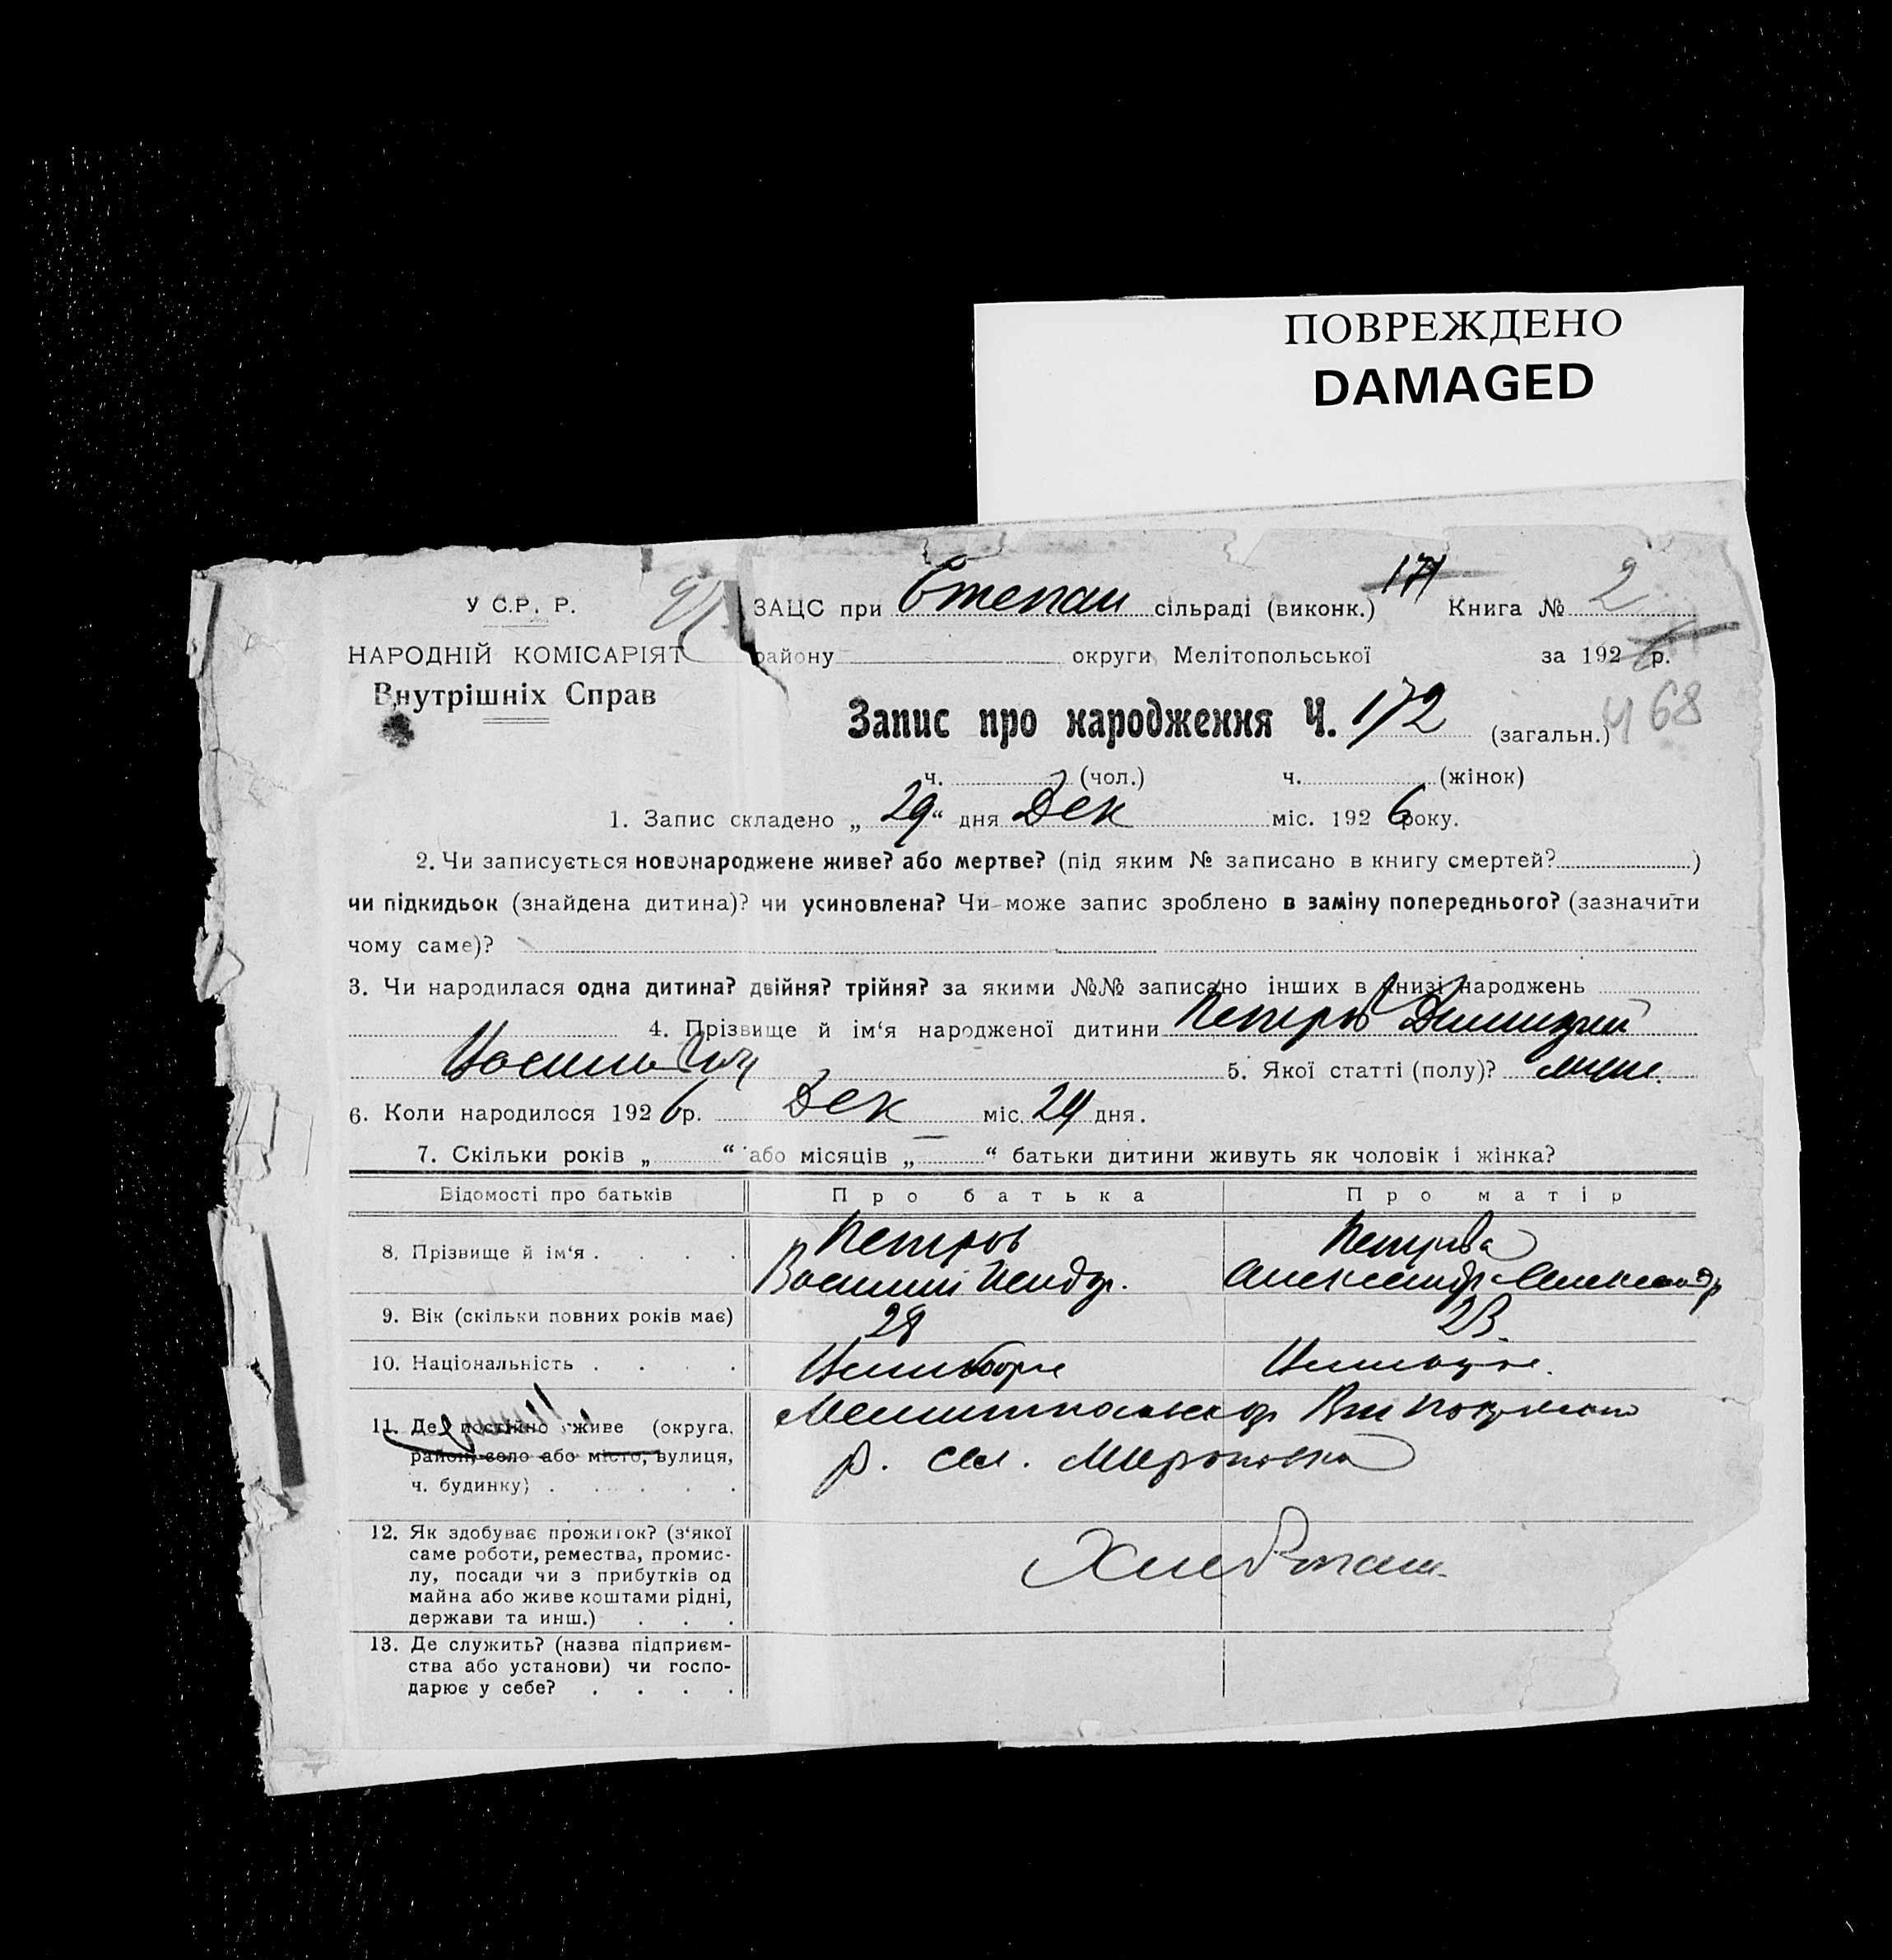 ПОВРЕЖДЕНО
DAMAGED
У С.Р. Р.
НАРОДНІЙ КОМІСАРІЯТ
Внутрішніх Справ
ЗАЦС при Степан сільраді (виконк.) 171 Книга № 2
району округи Мелітопольської за 192 р.
Запис про народження Ч. 172 (загальн.) 468
ч. (чол.) ч. (жінок)
1. Запис складено „ 29 “ дня Дек міс. 192 6 року.
2. Чи записується новонароджене живе? або мертве? (під яким № записано в книгу смертей? )
чи підкидьок (знайдена дитина)? чи усиновлена? Чи може запис зроблено в заміну попереднього? (зазначити
чому саме)?
3. Чи народилася одна дитина? двійня? трійня? за якими №№ записано інших в книзі народжень
4. Прізвище й ім‘я народженої дитини Петров Димитрий
5. Якої статті (полу)?
6. Коли народилося 192 6 р. Дек міс. 24 дня.
7. Скільки років „ “ або місяців „ “ батьки дитини живуть як чоловік і жінка?
Відомості про батьків Про батька Про матір
8. Прізвище й ім‘я . . . . Петров Петрова
Василий Александр Александр
9. Вік (скільки повних років має) 28 23
10. Національність . . . .
11. Де постійно живе (округа,
район, село або місто, вулиця,
ч. будинку) . . . . .
р. сел. Мироновка
12. Як здобуває прожиток? (з‘якої
саме роботи, ремества, промис-
лу, посади чи з прибутків од
майна або живе коштами рідні,
держави та инш.) . . .
Хлебопаш.
13. Де служить? (назва підприєм-
ства або установи) чи госпо-
дарює у себе? . . . .